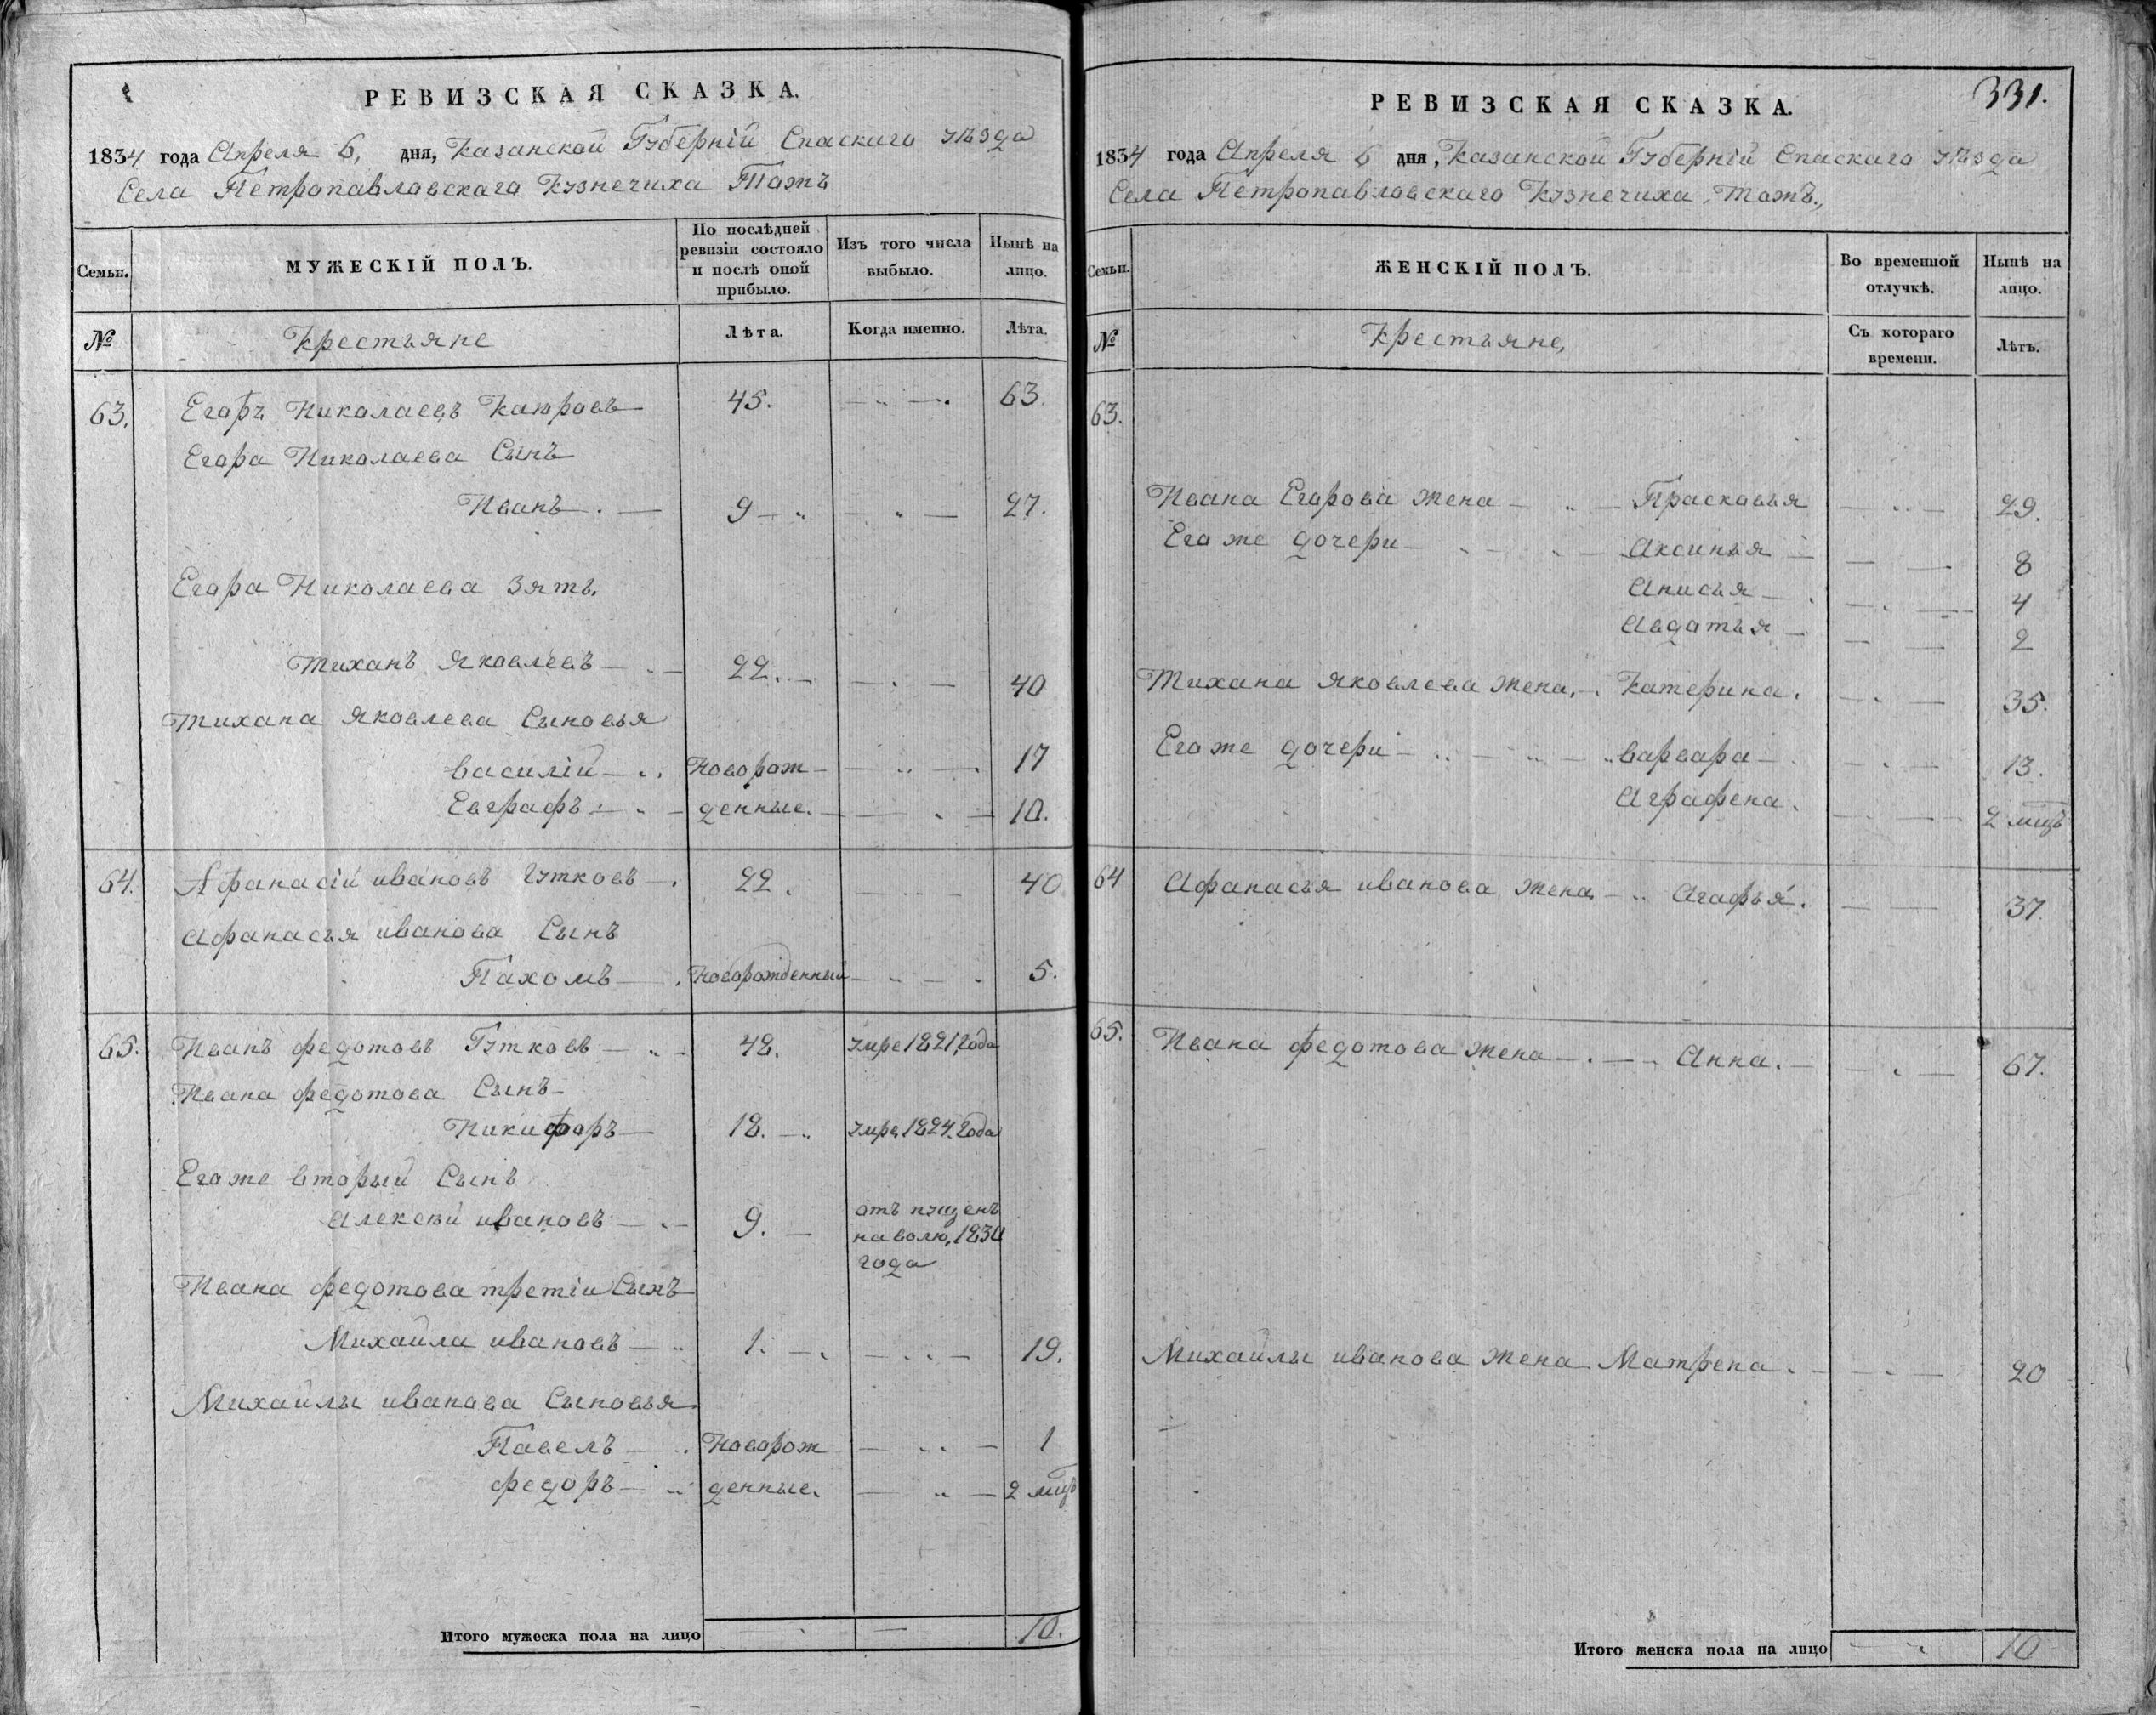 РЕВИЗСКАЯ СКАЗКА.
1834 года Апреля 6, дня, Казанской Губерніи Спаскаго уѣзда
Села Петропавловскаго Кузнечиха Тожъ
Семьи. МУЖЕСКІЙ ПОЛЪ. По послѣдней ревизіи состояло и послѣ оной прибыло. Изъ того числа выбыло. Нынѣ на лицо.
№ Крестьяне Лѣта. Когда именно. Лѣта.
63. Егоръ Николаевъ 45. 63.
Егора Николаева Сынъ
Иванъ 9 27.
Егора Николаева зять
Тихонъ Яковлевъ 22. 40
Тихона Яковлева Сыновья
Василій Новорож 17
Евграфъ денные. 10.
64. Афанасій ивановъ Гутковъ 22. 40
Афанасья иванова Сынъ
Пахомъ Новорожденный 5.
65. Иванъ федотовъ Гутковъ 48. умре 1821, года
Ивана федотова Сынъ
Никифоръ 18. умре 1824. года
Его же вторый Сынъ
Алексѣй ивановъ 9. отъ пущенъ
на волю, 1830
года
Ивана федотова третіи Сынъ
Михайла ивановъ 1. 19.
Михайлы иванова Сыновья
Павелъ Новорож 1
федоръ денные. 2 мцъ
Итого мужеска пола на лицо 10.
331.
РЕВИЗСКАЯ СКАЗКА.
1834 года Апреля 6 дня, Казанской Губерніи Спаскаго уѣзда
Села Петропавловскаго Кузнечиха, тожъ.,
Семьи. ЖЕНСКІЙ ПОЛЪ. Во временной отлучкѣ. Нынѣ на лицо.
№ Крестьяне, Съ котораго времени. Лѣтъ.
63.
Ивана Егорова жена Прасковья 29.
Его же дочери Аксинья 8
Анисья 4
Авдотья 2
Тихона Яковлева жена Катерина. 35.
Его же дочери Варвара 13.
Аграфена. 2 мцъ
64 Афанасья иванова жена Агафья. 37.
65. Ивана федотова жена Анна. 67.
Михайлы иванова жена Матрена. 20
Итого женска пола на лицо 10